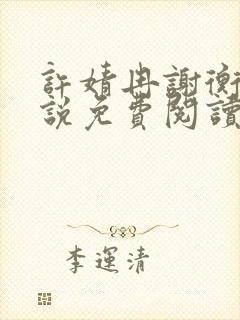 許婧冉謝衡
說免費閱讀
李運清